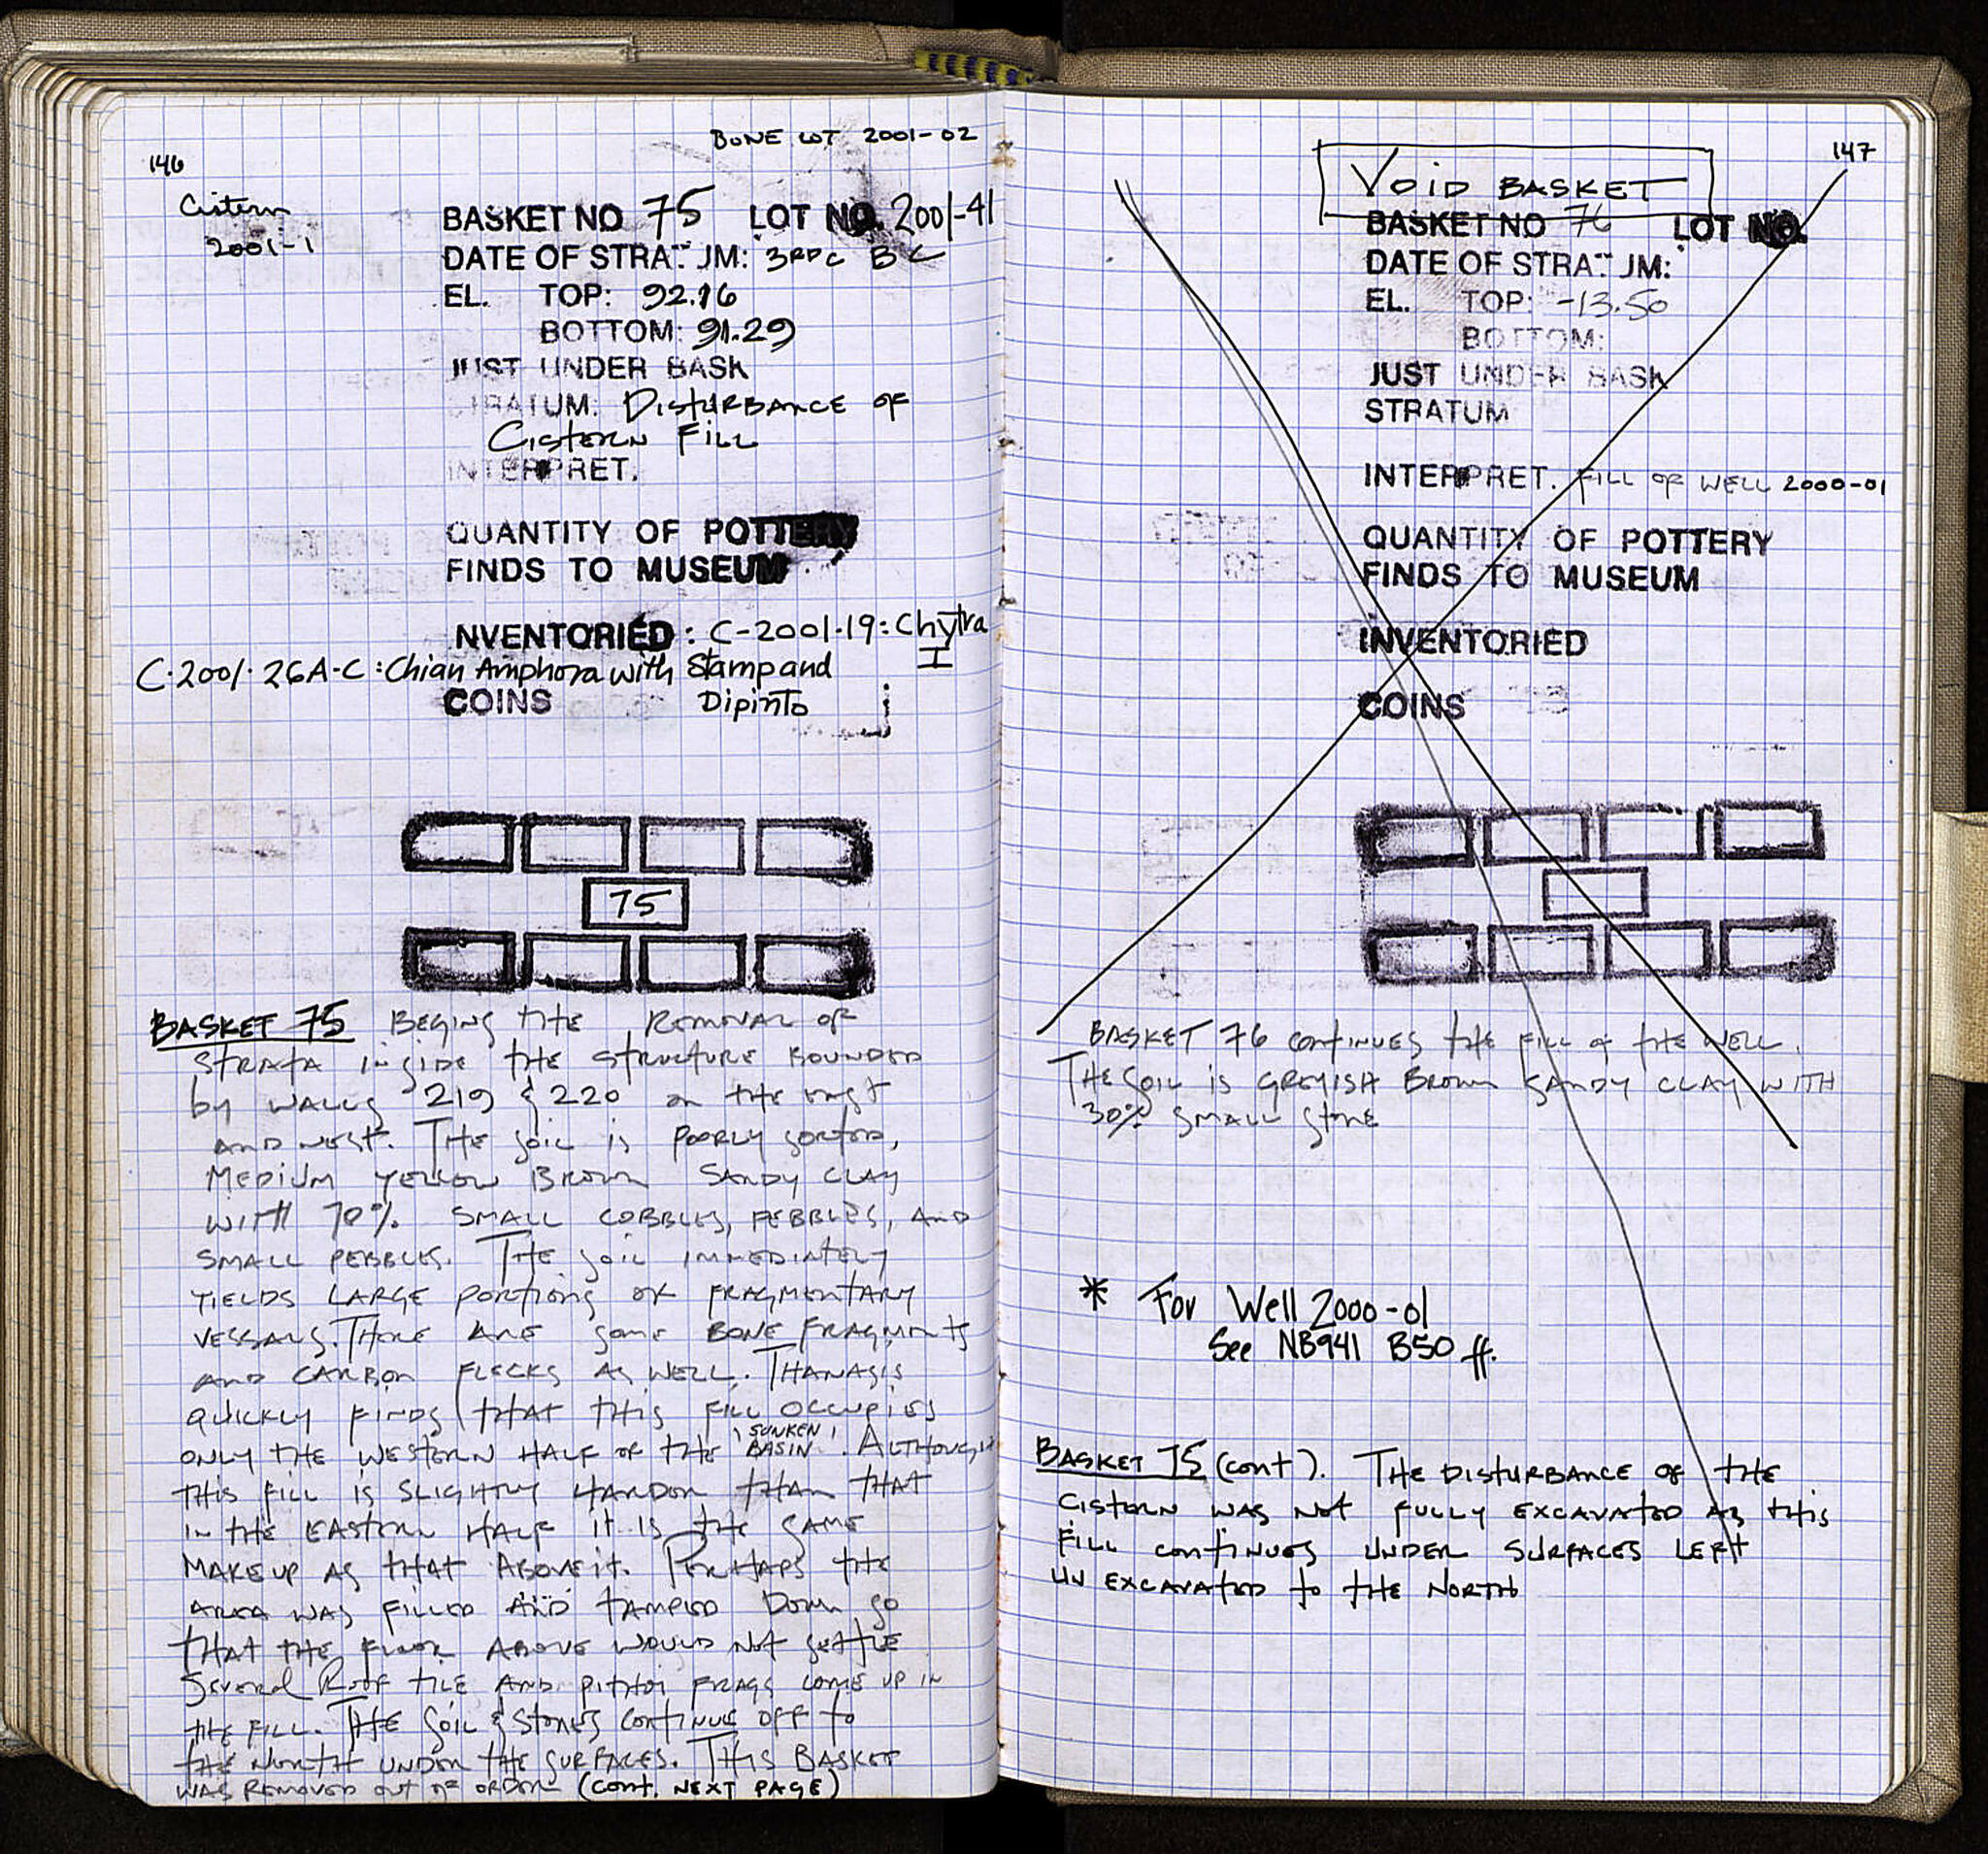 BONE LOT 2001-02
146
Cistern
2001-1
BASKET NO 75 LOT NO. 2001-41
DATE OF STRAT JM: 3RD C BC
EL. TOP: 92.16
BOTTOM: 91.29
JUST UNDER BASK
STRATUM: DISTURBANCE OF
CISTERN FILL
INTERPRET.
QUANTITY OF POTTERY
FINDS TO MUSEUM
NVENTORIED: C-2001-19: Chytra I
C-2001-26A-C: Chian Amphora with Stamp and
COINS Dipinto
75
BASKET 75 BEGINS THE REMOVAL OF
STRATA INSIDE THE STRUCTURE BOUNDED
by WALLS 219 & 220 on the east
AND WEST. THE SOIL IS POORLY SORTED,
MEDIUM YELLOW BROWN SANDY CLAY
WITH 70% SMALL COBBLES, PEBBLES, AND
SMALL PEBBLES. THE SOIL IMMEDIATELY
YIELDS LARGE PORTIONS OF FRAGMENTARY
VESSALS. THERE ARE some BONE FRAGMENTS
AND CARBON FLECKS AS WELL. THANASIS
QUICKLY FINDS THAT THIS FILL OCCUPIES
ONLY THE WESTERN HALF OF THE 'SUNKEN' BASIN. ALTHOUGH
THIS FILL IS SLIGHTLY HARDER THAN THAT
IN THE EASTERN HALF IT IS THE SAME
MAKEUP AS THAT ABOVE IT. PERHAPS THE
AREA WAS FILLED AND TAMPED DOWN SO
THAT THE FLOOR ABOVE WOULD NOT SETTLE
Several Roof TILE AND PITHOI FRAGS COME UP IN
THE FILL. THE SOIL & STONES CONTINUE OFF TO
THE NORTH UNDER THE SURFACES. THIS BASKET
WAS REMOVED OUT OF ORDER (CONT. NEXT PAGE)
147
VOID BASKET
BASKET NO 76 LOT NO.
DATE OF STRAT JM:
EL. TOP: -13.50
BOTTOM:
JUST UNDER BASK
STRATUM
INTERPRET. FILL OF WELL 2000-01
QUANTITY OF POTTERY
FINDS TO MUSEUM
INVENTORIED
COINS
BASKET 76 CONTINUES THE FILL of THE WELL.
THE SOIL IS GREYISH BROWN SANDY CLAY WITH
30% SMALL STONE
* For Well 2000-01
See NB941 B50 ff.
BASKET 75 (cont). THE DISTURBANCE OF THE
CISTERN WAS NOT FULLY EXCAVATED AS THIS
FILL CONTINUES UNDER SURFACES LEFT
UN EXCAVATED TO THE NORTH